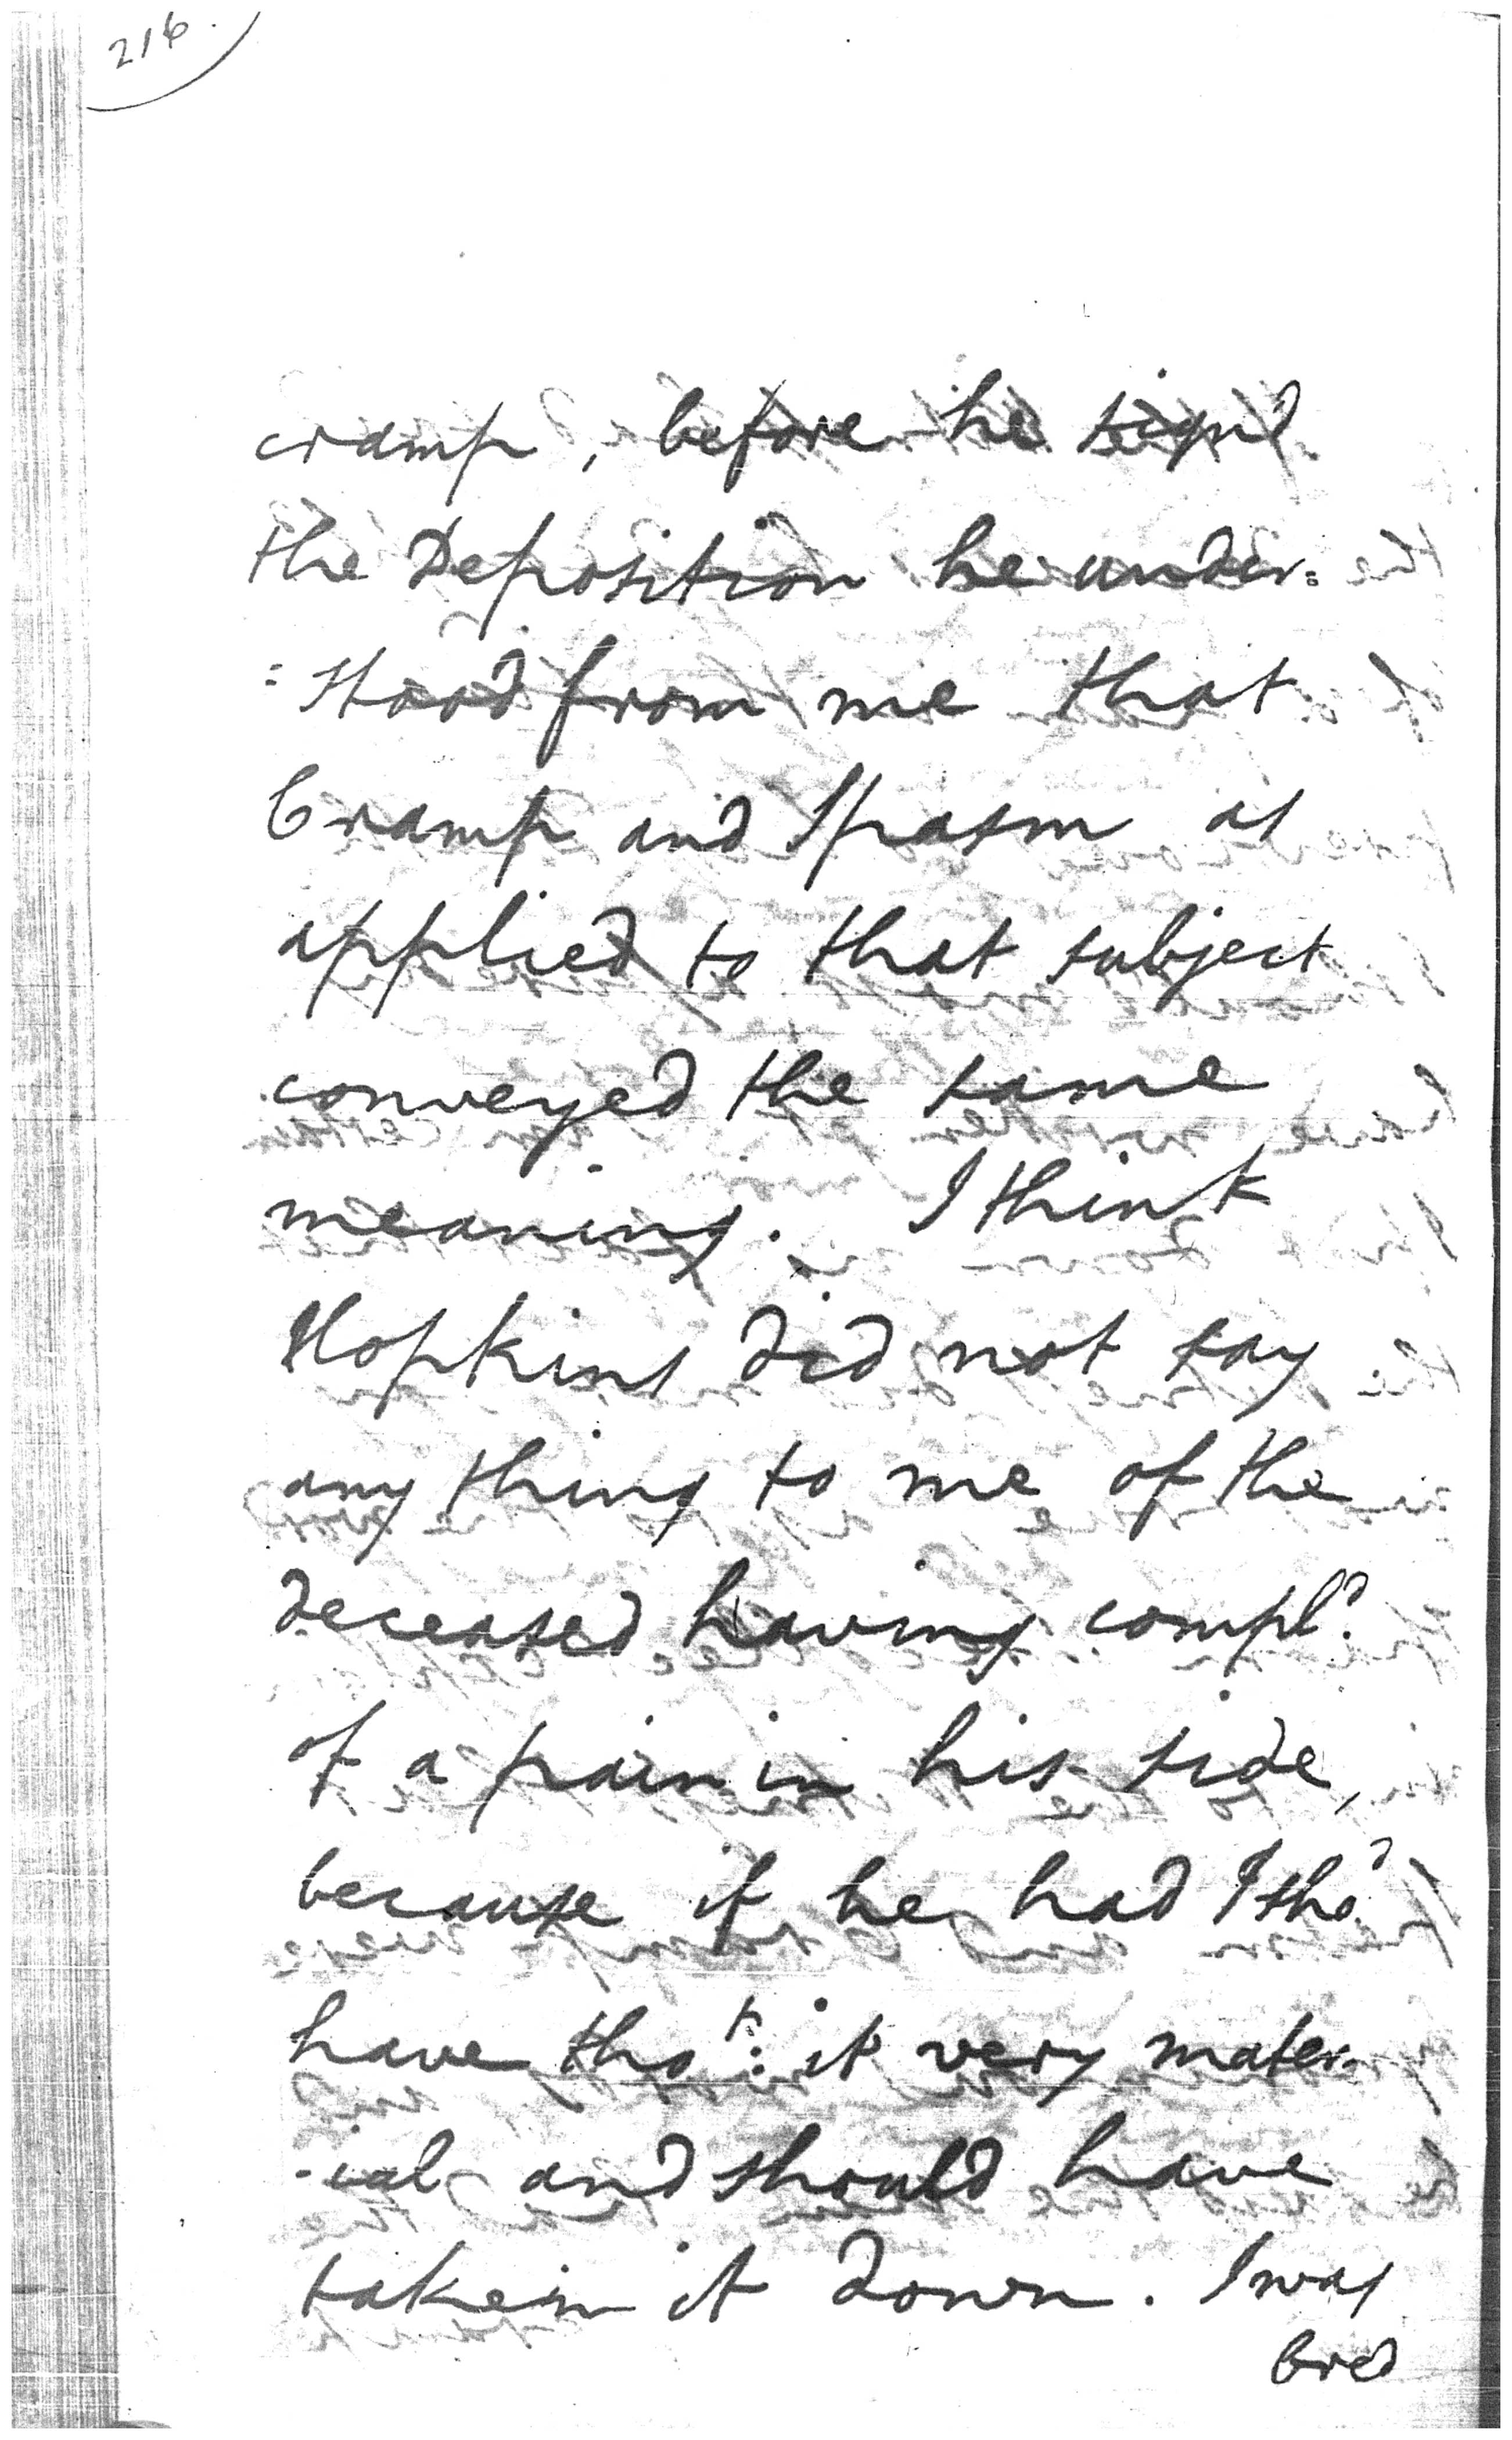 216.
cramp, before he sign^d
the Deposition he under=
=stood from me that
Cramp and Spasm as
applied to that subject
conveyed the same
meaning. I think
Hopkins did not say
any thing to me of the
deceased having compl^d.
of a pain in his side,
because if he had I sho^d.
have tho^t: it very mater-
-ial and should have
taken it down. I was
bred